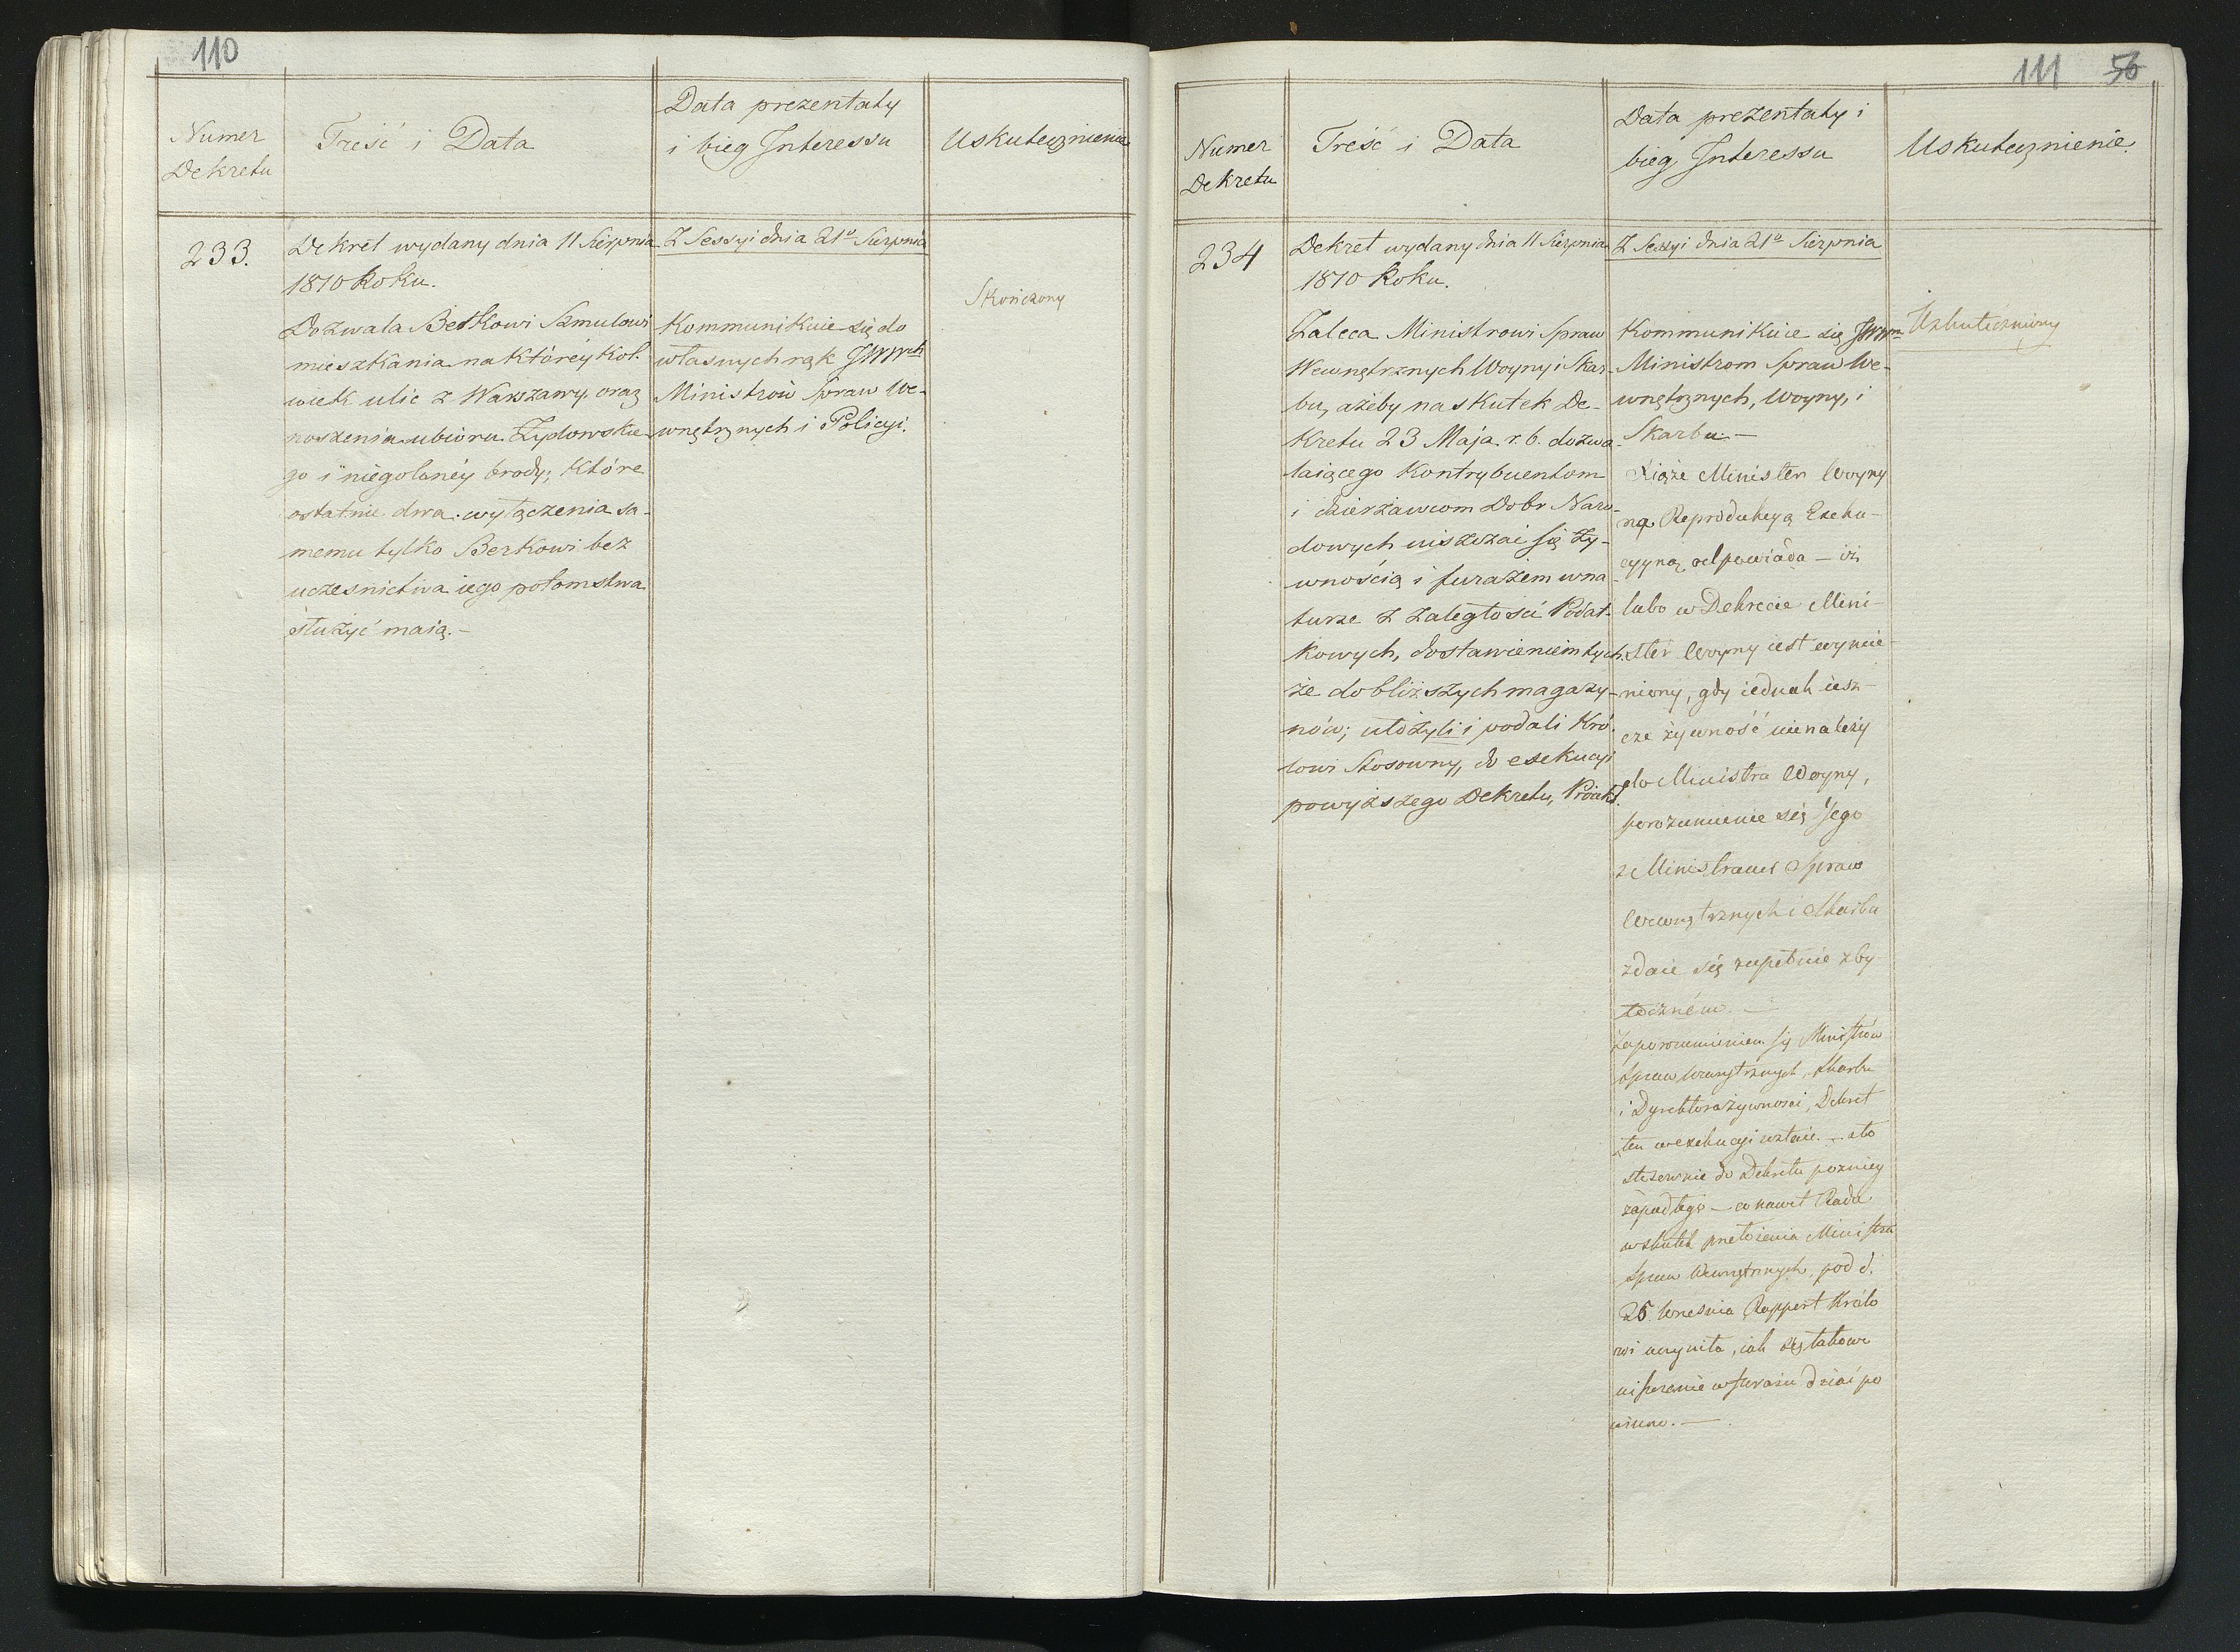 110
Numer
Dekretu
Treść i Data
Data prezentaty
i bieg Interessu
Uskutecznienie
233.
Dekret wydany dnia 11 Sierpnia
1810 Roku.
Dozwala Berkowi Szmulowi
mieszkania na któréy kol-
wiek ulic z Warszawy, oraz
noszenia ubioru Żydowskie-
go i niegolonéy brody; które
ostatnie dwa wyłączenia sa-
memu tylko Berkowi bez
uczesnictwa iego potomstwa
służyć maią.-
Z Sessyi dnia 21º Sierpnia
Kommunikuie się do
własnych rąk JWWch
Ministrów Spraw We-
wnętrznych i Policyi.
Skończony
111 56
Numer
Dekretu
Treść i Data
Data prezentaty i
bieg Interessu
Uskutecznienie.
234
Dekret wydany dnia 11 Sierpnia
1810 Roku.
Zaleca Ministrowi Spraw
Wewnętrznych Woyny i Skar-
bu, ażeby na skutek De-
kretu 23 Maja r. b. dozwa-
laiącego Kontrybuentom
i dzierżawcom Dobr Naro-
dowych uiszczać się ży-
wnością i furażem w na-
turze z zaległości Podat-
kowych, dostawieniem tych-
że do bliższych magazy-
nów; ułożyli i podali Kró-
lowi Stosowny, do exekucyi
powyższego Dekretu, Proiekt.
Z Sessyi dnia 21º Sierpnia
Kommunikuie się JWWm
Ministrom Spraw We-
wnętrznych, Woyny, i
Skarbu.-
Xiąże Minister Woyny
na Reprodukcyą Exeku-
cyyną odpowiada - iż
lubo w Dekrecie Mini-
ster Woyny iest wymie-
niony, gdy iednak iesz-
cze żywność nienależy
do Ministra Woyny,
porozumienie się Jego
z Ministrami Spraw
Wewnętrznych i Skarbu
zdaie się zupełnie zby-
teczném. -
Za porozumieniem się Ministrów
Spraw Wewnętrznych, Skarbu
i Dyrektora żywności, Dekret
ten w exekucyi ustaie. - a to
stosownie do Dekretu pozniey
zapadłego - co nawet Rada
w skutek przełożenia Ministra
Spraw Wewnętrznych pod d.
25 Wrzesnia Rapport Królo
wi uczyniła, iak się takowe
uiszczenie w furażu dziać po
winno. -
Uskuteczniony